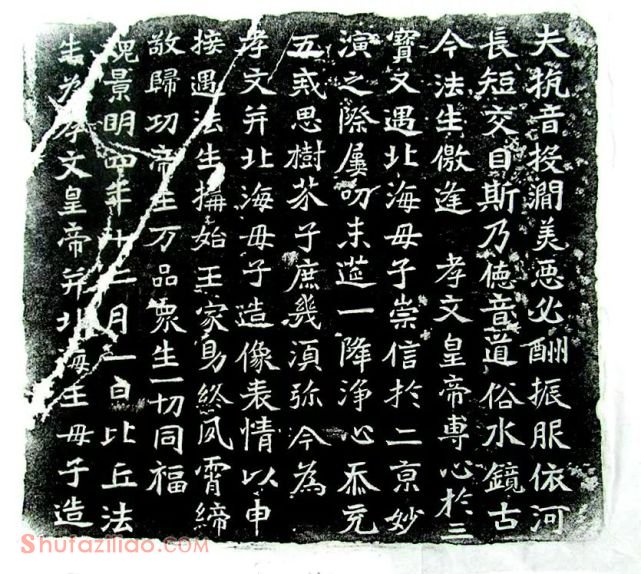 夫犺音投澗美惡必酬振服依河
長短交目斯乃德音道俗水鏡古
今法生儌逢 孝文皇帝專心於三
寶又遇北海母子崇信於二京妙
演之際屢叨末筵一降淨心忝充
五戒思樹芥子庶幾湏弥今為
孝文并北海母子造像表情以申
接遇法生構始王家易終夙霄締
敬歸功帝王万品衆生一切同福
魏景明四年十二月一日比丘法
生為孝文皇帝并北海王母子造
Shufaziliao.COM